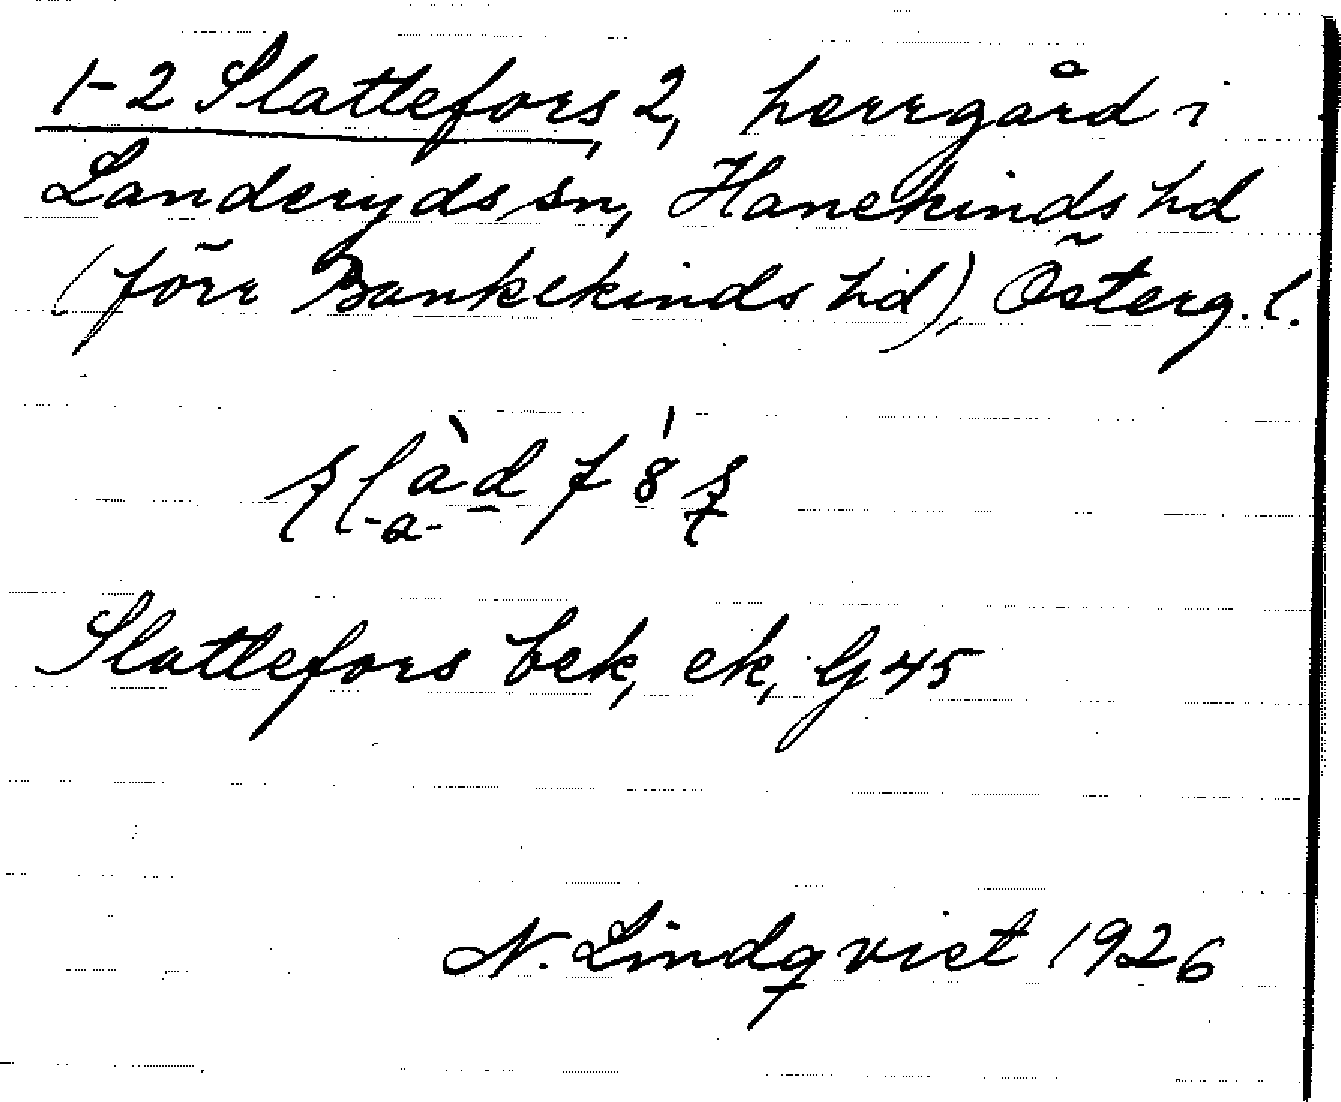 1-2 Slattefors, 2, herrgård i
Landeryds sn, Hanekinds hd
(förr Bankekinds hd), Österg. l.
Slattefors bek, ek, G 45
N. Lindqvist 1926